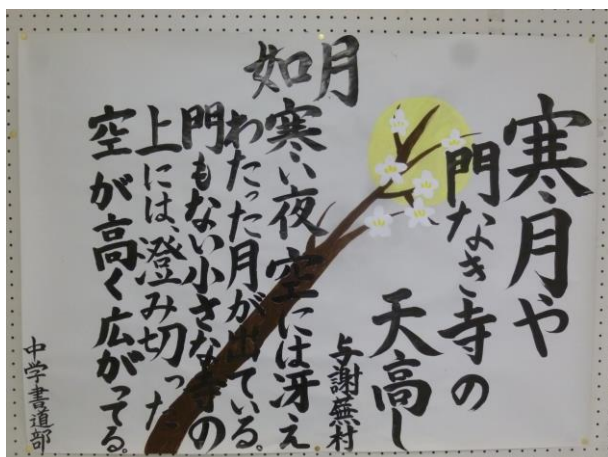 寒月や
門なき寺の
天高し
与謝蕪村
如月
寒い夜空には冴え
わたった月が出ている。
門もない小さな寺の
上には、澄み切った
空が高く広がってる。
中学書道部